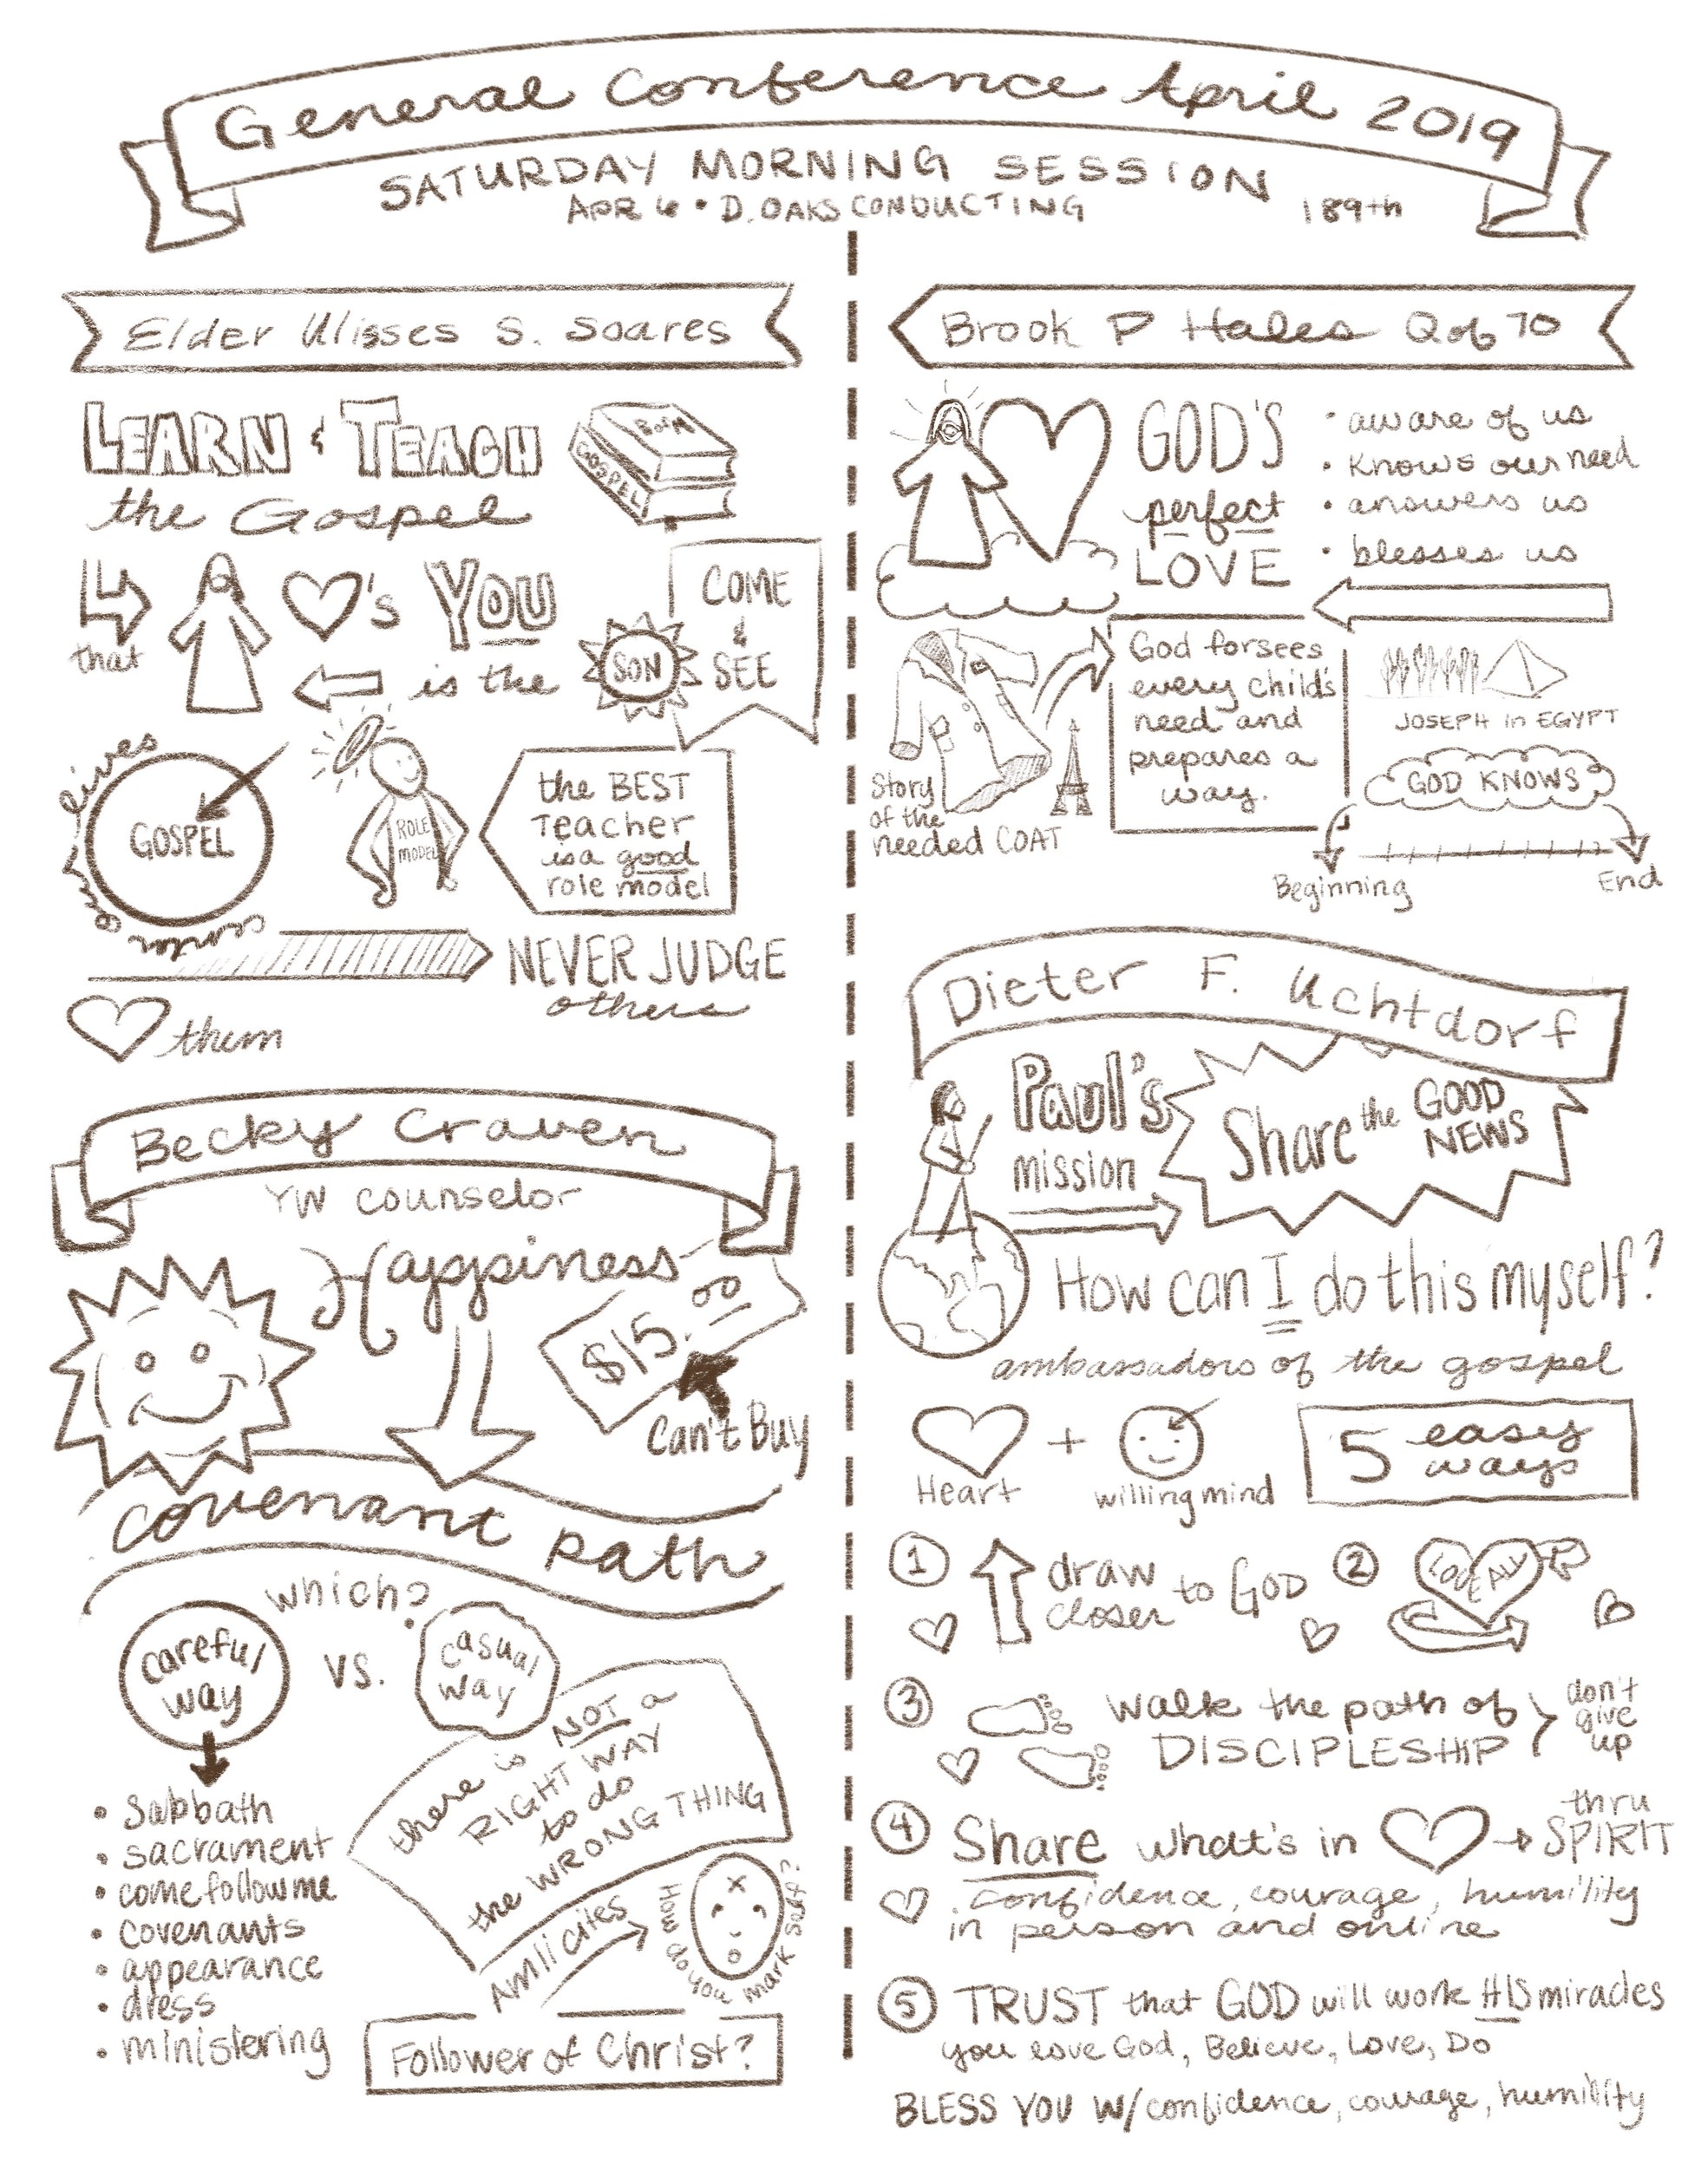 General Conference April 2019
SATURDAY MORNING SESSION
APR 6 • D. OAKS CONDUCTING
189th
Elder Ulisses S. Soares
LEARN & TEACH
the Gospel
BofM
GOSPEL
that
♡'s YOU
is the
SON
COME
&
SEE
GOSPEL
center our lives
ROLE
MODEL
the BEST
Teacher
is a good
role model
NEVER JUDGE
others
♡ them
Becky Craven
YW counselor
Happiness
$15.00
Can't Buy
covenant path
which?
careful
way
vs.
casual
way
• Sabbath
• sacrament
• come follow me
• covenants
• appearance
• dress
• ministering
there is NOT a
RIGHT WAY
to do
the WRONG THING
Amlicites
How do you mark self?
Follower of Christ?
Brook P Hales Q of 70
GOD'S
perfect
LOVE
• aware of us
• knows our need
• answers us
• blesses us
Story
of the
needed COAT
God forsees
every child's
need and
prepares a
way.
JOSEPH in EGYPT
GOD KNOWS
Beginning
End
Dieter F. Uchtdorf
Paul's
mission
Share the GOOD
NEWS
How can I do this myself?
ambassadors of the gospel
Heart
+
willing mind
5 easy
ways
1 draw
closer to GOD
2 LOVE ALL
3 walk the path of
DISCIPLESHIP
don't
give
up
4 Share what's in ♡ → thru
SPIRIT
confidence, courage, humility
in person and online
5 TRUST that GOD will work HIS miracles
you love God, Believe, Love, Do
BLESS YOU w/ confidence, courage, humility